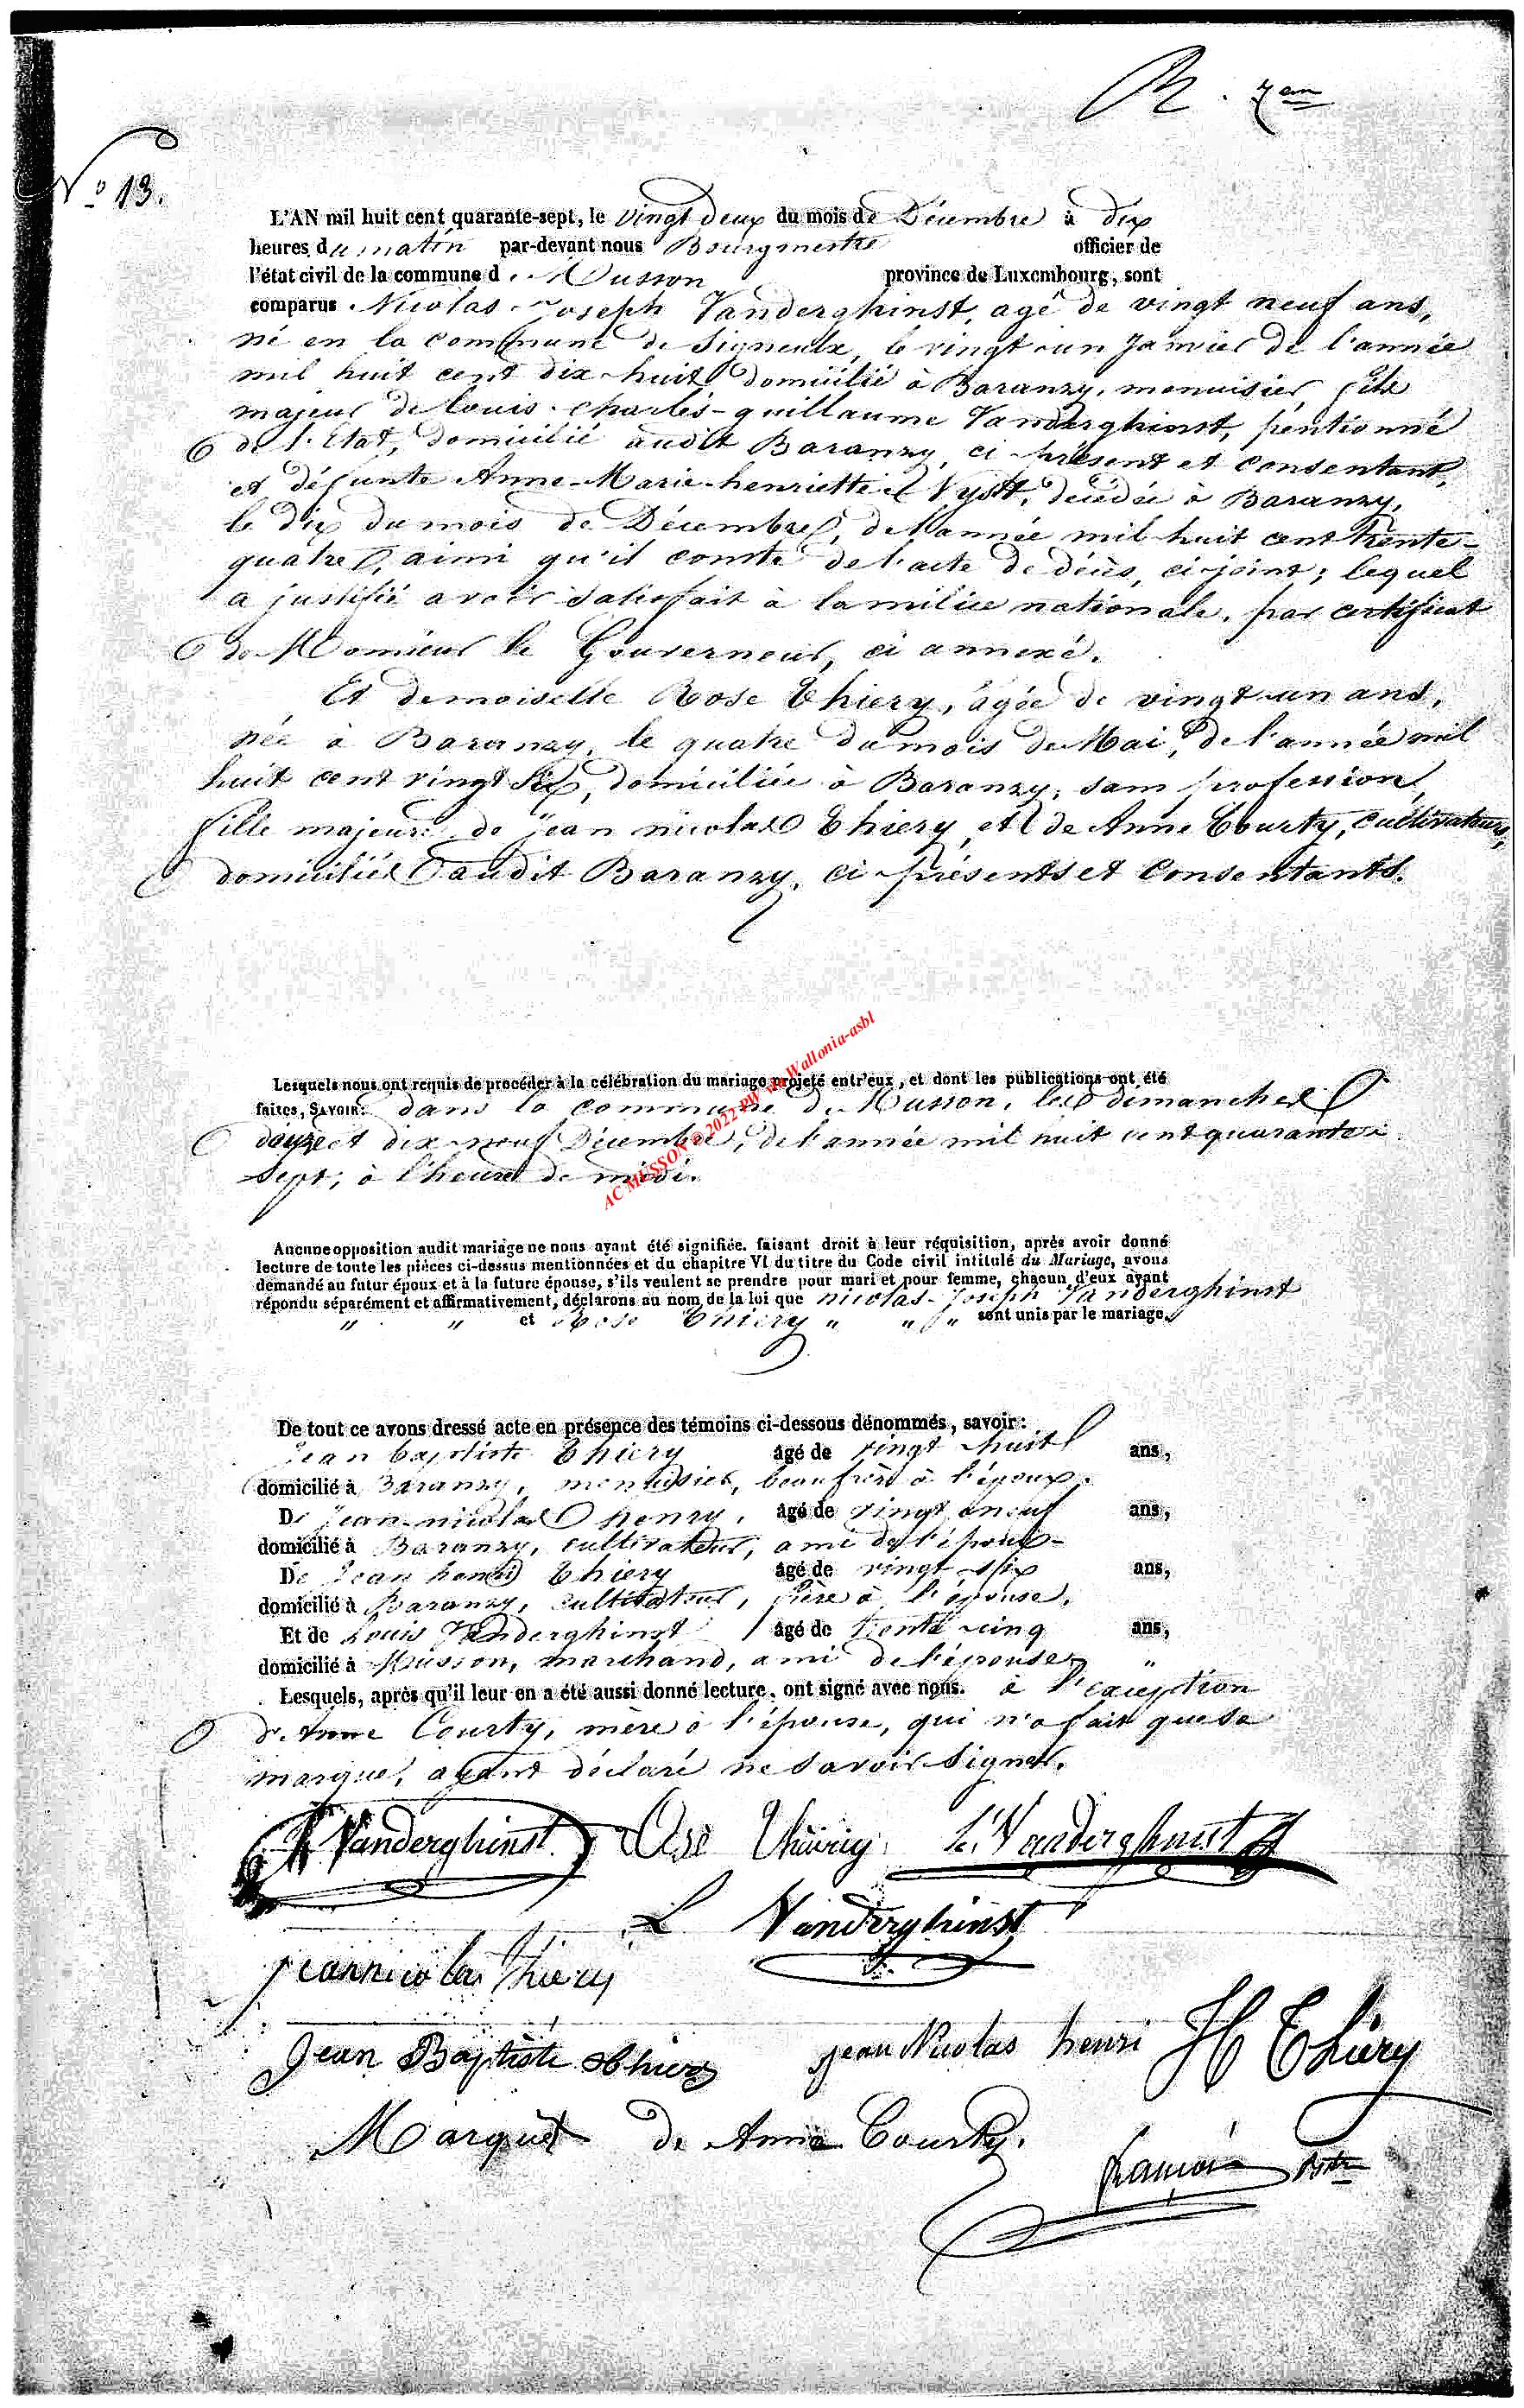 7em
No 13.
L'AN mil huit cent quarante-sept, le vingt deux du mois de Décembre à dix
heures du matin par-devant nous Bourgmestre officier de
l'état civil de la commune de Musson province de Luxembourg, sont
comparus Nicolas Joseph Vanderghinst, agé de vingt neuf ans,
né en la commune de Signeulx, le vingt-un Janvier de l'année
mil huit cent dix-huit, domicilié à Baranzy, menuisier, fils
majeur de Louis-Charles-guillaume Vanderghinst, pentionné
de l'Etat, domicilié audit Baranzy, ci-présent et consentant,
et défunte Anne-Marie-henriette Nyst, décédée à Baranzy,
le dix du mois de Décembre, de l'année mil huit cent trente-
quatre, ainsi qu'il conste de l'acte de décès, ci-joint; lequel
a justifié avoir satisfait à la milice nationale, par certificat
de Monsieur le Gouverneur, ci annexé.
Et demoiselle Rose Thiery, âgée de vingt-un ans,
née à Baranzy, le quatre du mois de Mai, de l'année mil
huit cent vingt six, domiciliée à Baranzy, sans profession,
fille majeure de Jean nicolas Thiery, et de Anne Courty, cultivateurs,
domiciliés audit Baranzy, ci-présents et consentants.
Lesquels nous ont requis de procéder à la célébration du mariage projeté entr'eux, et dont les publications ont été
faites, SAVOIR: dans la commune de Musson, les dimanches
douze et dix-neuf Décembre, de l'année mil huit cent quarante-
sept, à l'heure de midi.
AC MUSSON © 2022 PW via Wallonia-asbl
Aucune opposition audit mariage ne nous ayant été signifiée. faisant droit à leur réquisition, après avoir donné
lecture de toute les pièces ci-dessus mentionnées et du chapitre VI du titre du Code civil intitulé du Mariage, avons
demandé au futur époux et à la future épouse, s'ils veulent se prendre pour mari et pour femme, chacun d'eux ayant
répondu séparément et affirmativement, déclarons au nom de la loi que nicolas-Joseph Vanderghinst
" " et Rose Thiery " " " sont unis par le mariage.
De tout ce avons dressé acte en présence des témoins ci-dessous dénommés, savoir:
Jean baptiste Thiery âgé de vingt-huit ans,
domicilié à Baranzy, menuisier, beaufrère à l'époux.
De Jean-nicolas henry, âgé de vingt neuf ans,
domicilié à Baranzy, cultivateur, ami de l'époux-
De Jean henri Thiery âgé de vingt-six ans,
domicilié à Baranzy, cultivateur, frère à l'épouse.
Et de Louis Vanderghinst âgé de trente cinq ans,
domicilié à Musson, marchand, ami de l'épouse "
Lesquels, après qu'il leur en a été aussi donné lecture, ont signé avec nous. à l'exception
d'Anne Courty, mère à l'épouse, qui n'a fait que sa
marque, ayant déclaré ne savoir signer.
Vanderghinst Rose Thiery Vanderghinst
L Vanderghinst
jean nicolas Thiery
Jean Baptiste thiery jean Nicolas henri H Thiery
Marque de Anne Courty.
françois